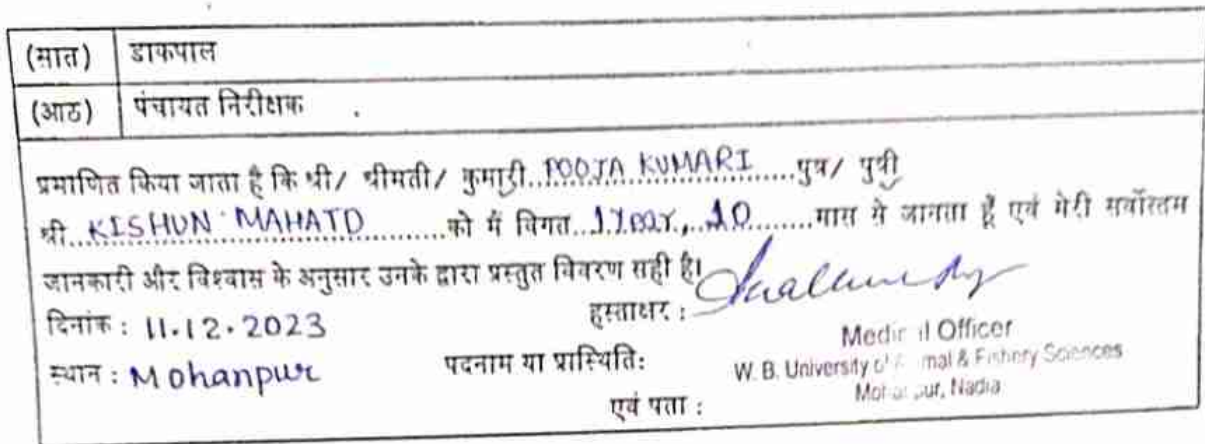 (सात) डाकपाल
(आठ) पंचायत निरीक्षक .
प्रमाणित किया जाता है कि श्री/ श्रीमती/ कुमारी..POOJA KUMARI......पुत्र/ पुत्री
श्री...KISHUN MAHATO............को मैं विगत..1 Year, 10.......मास से जानता हूँ एवं मेरी सर्वोत्तम
जानकारी और विश्वास के अनुसार उनके द्वारा प्रस्तुत विवरण सही है।
दिनांक : 11.12.2023 हस्ताक्षर :
स्थान : Mohanpur पदनाम या प्रास्थिति: Medical Officer
W. B. University of Animal & Fishery Sciences
एवं पता : Mohanpur, Nadia